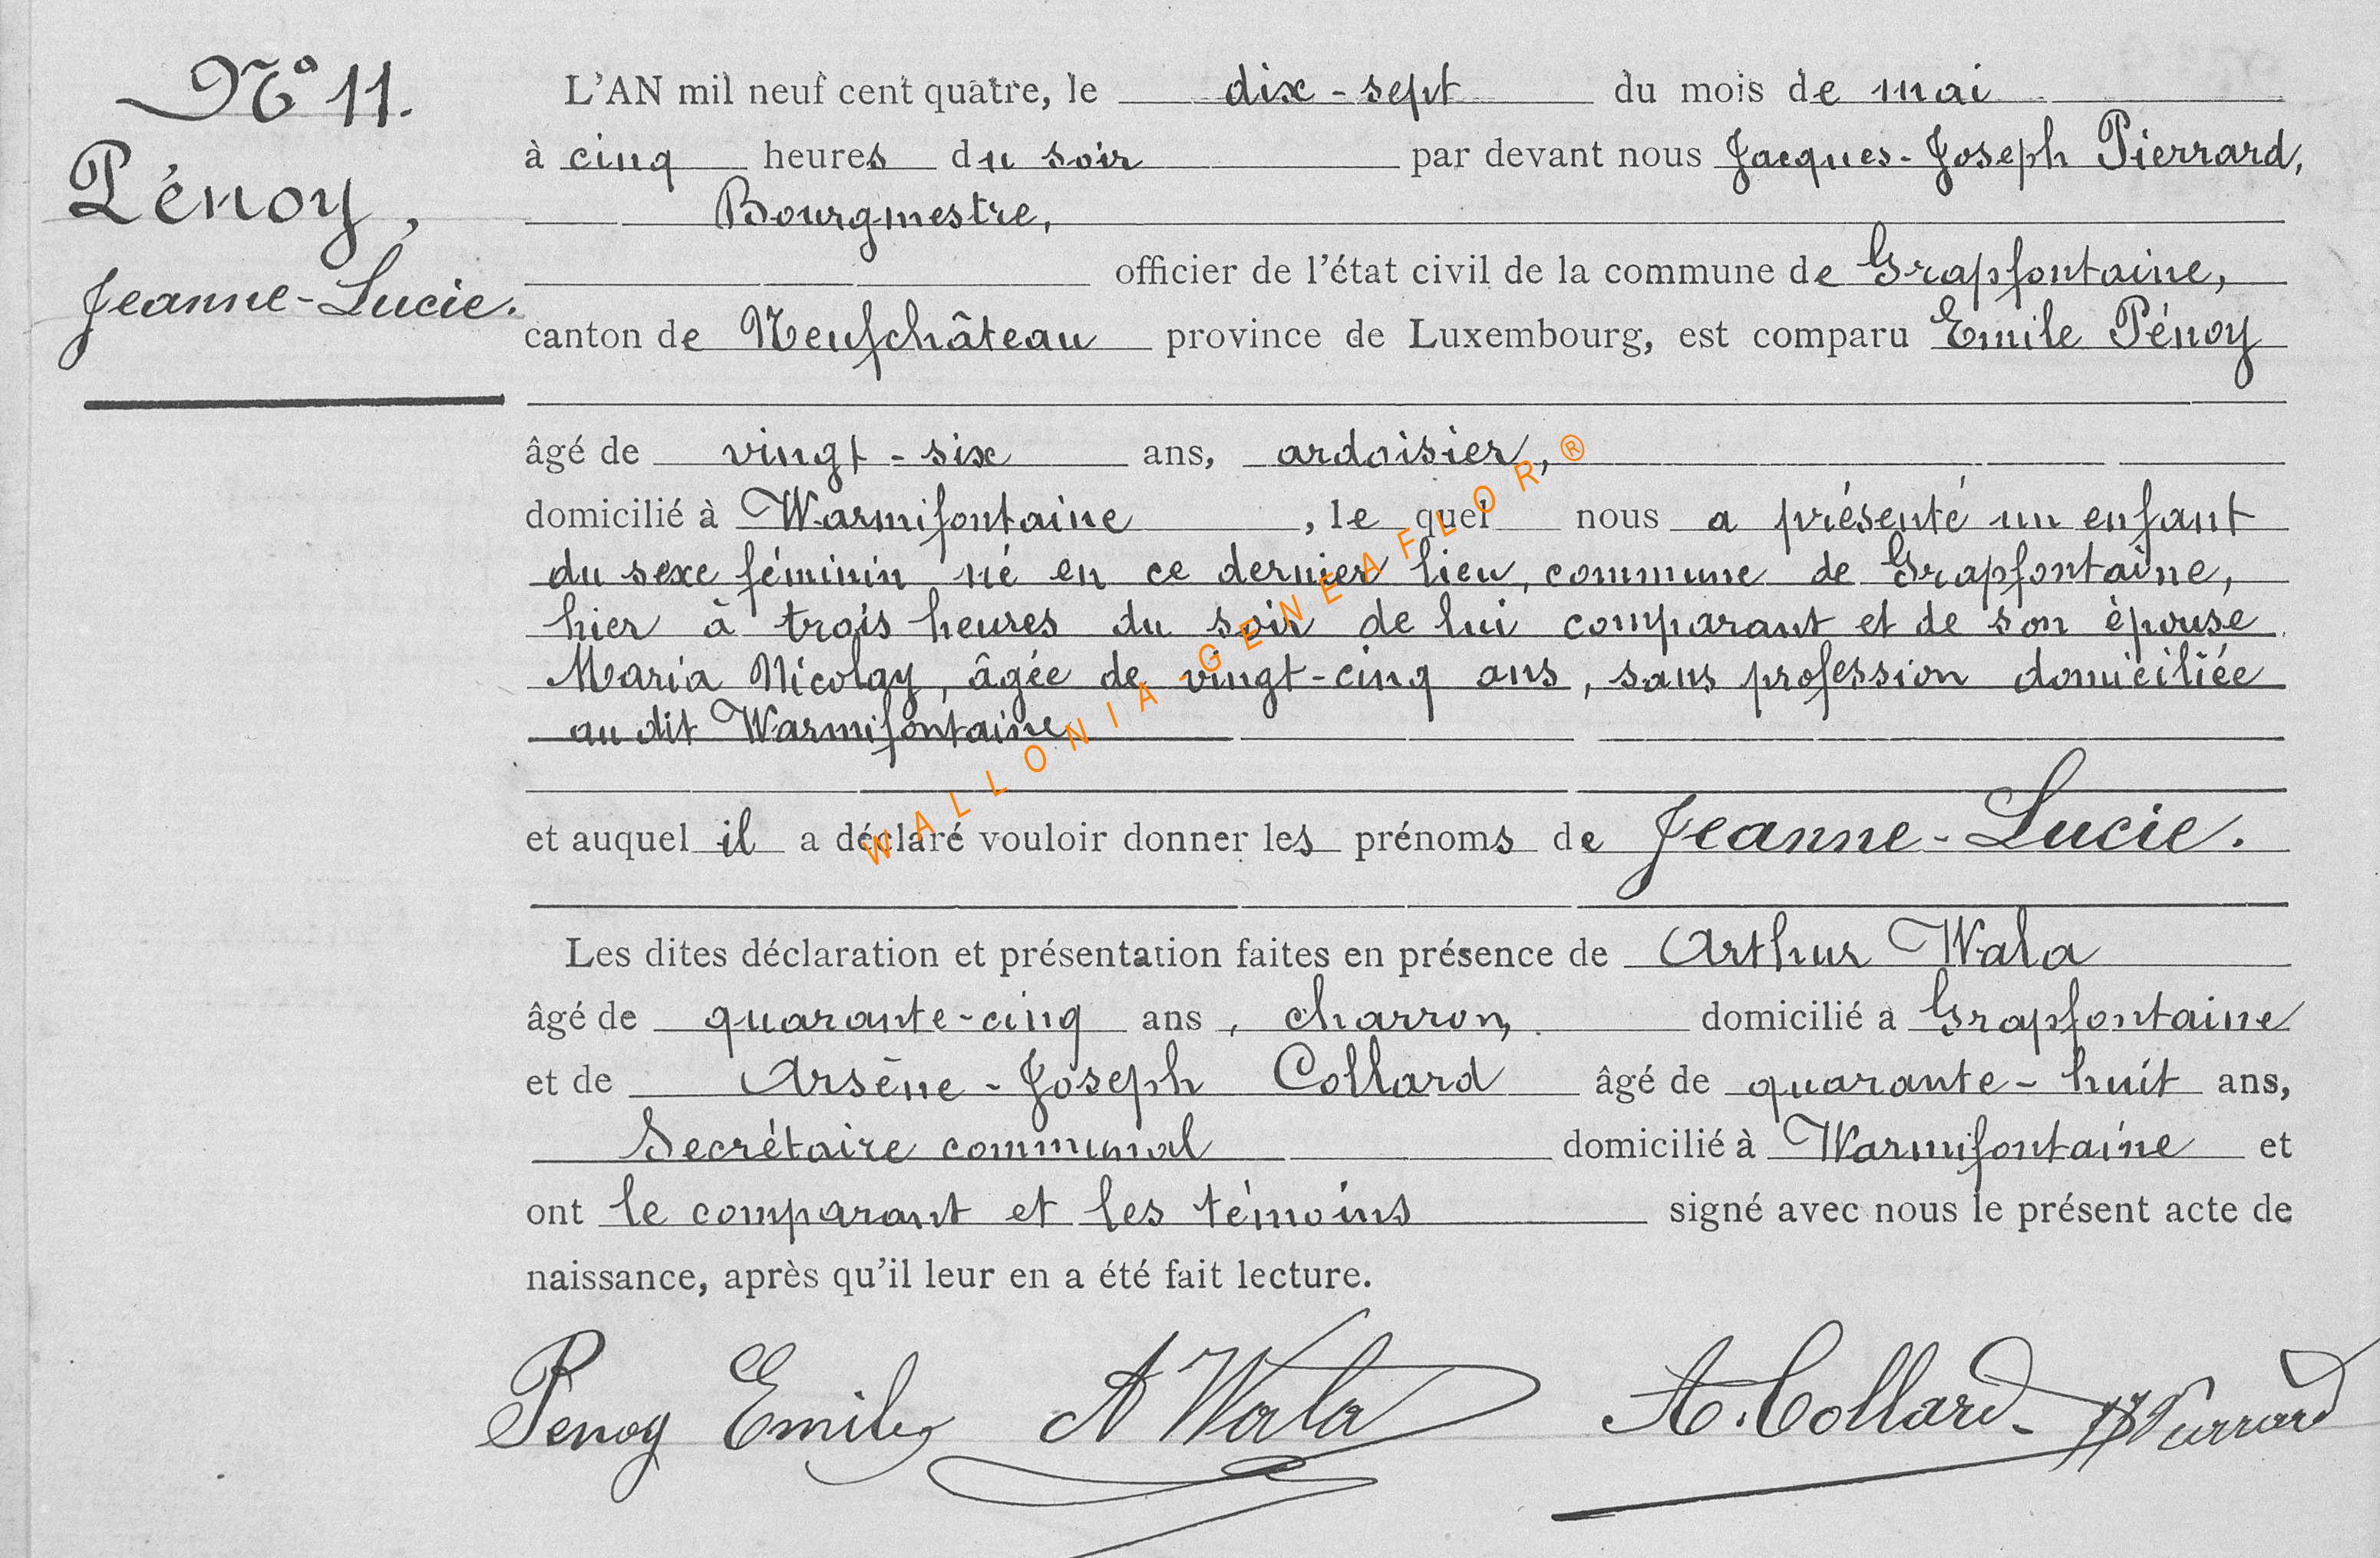 Nº 11.
Pénoy,
Jeanne-Lucie.
L'AN mil neuf cent quatre, le dix-sept du mois de mai
à cinq heures du soir par devant nous Jacques-Joseph Pierrard,
Bourgmestre,
officier de l'état civil de la commune de Grapfontaine,
canton de Neufchâteau province de Luxembourg, est comparu Emile Pénoy
âgé de vingt-six ans, ardoisier,
domicilié à Warmifontaine, le quel nous a présenté un enfant
du sexe féminin né en ce dernier lieu, commune de Grapfontaine,
hier à trois heures du soir de lui comparant et de son épouse
Maria Nicolay, âgée de vingt-cinq ans, sans profession domiciliée
au dit Warmifontaine
et auquel il a déclaré vouloir donner les prénoms de Jeanne-Lucie.
Les dites déclaration et présentation faites en présence de Arthur Wala
âgé de quarante-cinq ans, charron, domicilié à Grapfontaine
et de Arsène-Joseph Collard âgé de quarante-huit ans,
Secrétaire communal domicilié à Warmifontaine et
ont le comparant et les témoins signé avec nous le présent acte de
naissance, après qu'il leur en a été fait lecture.
Penoy Emile A Wala A. Collard JJ Pierrard
WALLONIA-GENEAFLOR®